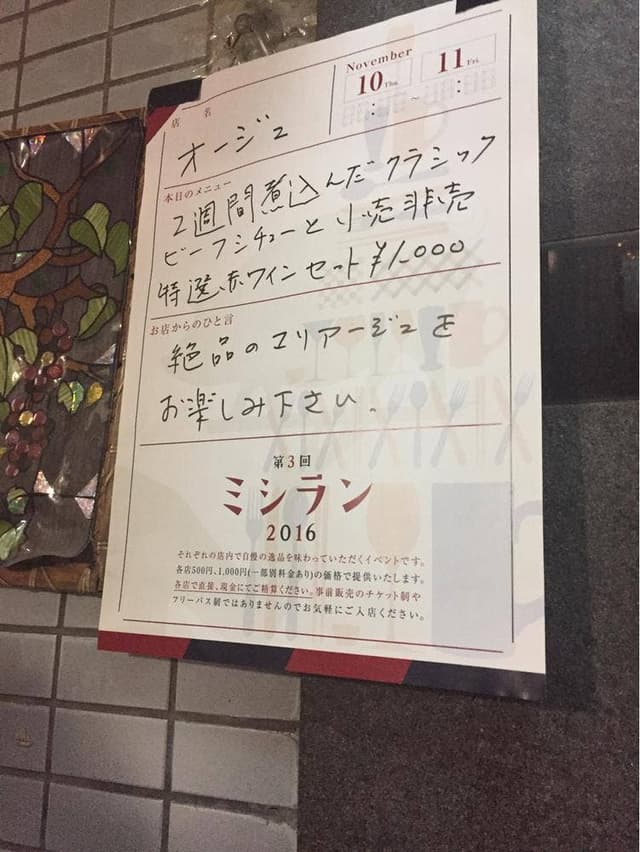 November
10 Thu. ～ 11 Fri.
: :
店 名
オージュ
本日のメニュー
2週間煮込んだクラシック
ビーフシチューと 小売非売
特選赤ワインセット ¥1.000
お店からのひと言
絶品のマリアージュを
お楽しみ下さい。
第3回
ミシラン
2016
それぞれの店内で自慢の逸品を味わっていただくイベントです。
各店500円、1,000円(一部別料金あり)の価格で提供いたします。
各店で直接、現金にてご精算ください。事前販売のチケット制や
フリーパス制ではありませんのでお気軽にご入店ください。